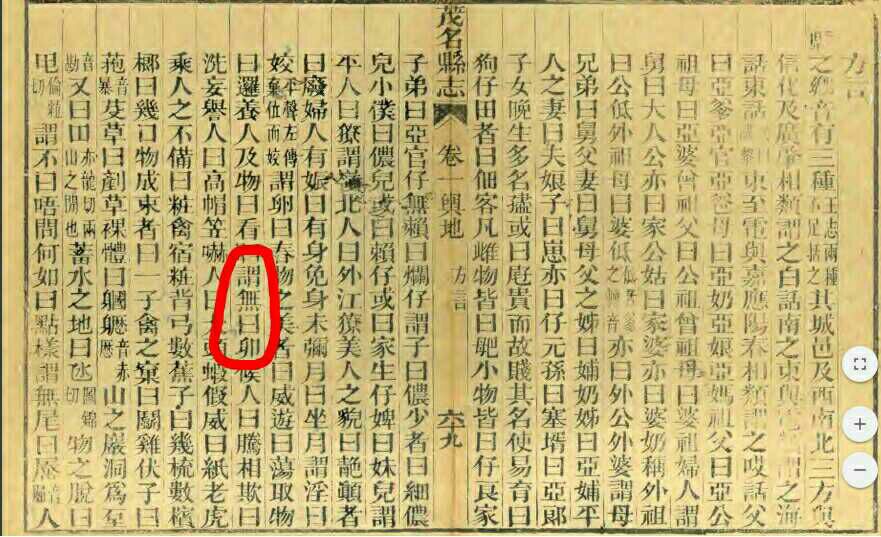 方言
縣之鄉音有三種王志兩種不足括之其城邑及西南北三方與
信化及廣肇相類謂之白話南之東與謂之海
話東話東至電與嘉應陽春相類謂之哎話父
曰亞爹亞官亞爸母曰亞奶亞娘亞媽祖父曰亞公
祖母曰亞婆曾祖父曰公祖曾祖母曰婆祖婦人謂
舅曰大人公亦曰家公姑曰家婆亦曰婆奶稱外祖
曰公低外祖母曰婆低低之音亦曰外公外婆謂母
兄弟曰舅父妻曰舅母父之姊曰㛐奶姊曰亞㛐平
人之妻曰夫娘子曰崽亦曰仔元孫曰塞壻曰亞郎
子女晚生多名孻或曰屘貴而故賤其名使易育曰
狗仔田者曰佃客凡雌物皆曰小物皆曰仔良家
茂名縣志 卷一輿地 方言 六十九
子弟曰亞官仔無賴曰爛仔謂子曰儂少者曰細儂
兒小僕曰儂兒或曰賴仔或曰家生仔婢曰妹兒謂
平人曰獠謂嶺北人曰外江獠美人之貌曰靘顛者
曰廢婦人有娠曰有身免身未彌月曰坐月謂淫曰
姣平聲左傳棄位而姣謂卵曰春物之美者曰威遊曰蕩取物
曰邏養人及物曰看謂無曰卯候人曰騰相欺曰
洗妄譽人曰高帽笠嚇人曰大頭蝦假威曰紙老虎
乘人之不備曰糚禽宿糚背弓數蕉子曰幾梳數檳
榔曰幾口物成束者曰一子禽之窠曰鬭雞伏子曰
菢音暴芟草曰剷草裸體曰軅軅音赤歷山之巖洞為
音勘又曰田亦龍切兩山之閒也蓄水之地曰氹圖錦物之脫曰
甩倫粒切謂不曰唔問何如曰點樣謂無尾曰音人